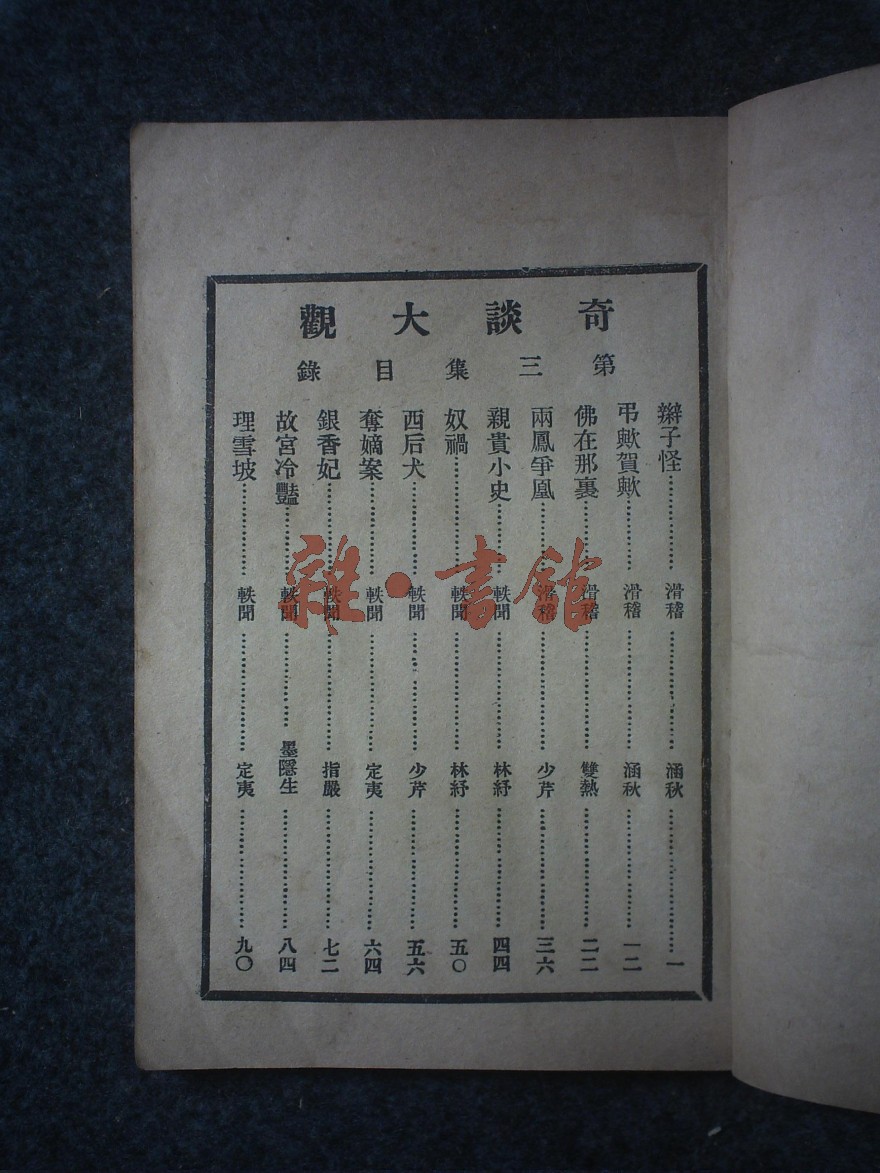 奇談大觀
第三集目錄
辮子怪……滑稽……涵秋……一
弔歟賀歟……滑稽……涵秋……一二
佛在那裏……滑稽……雙熱……二二
兩鳳爭凰……滑稽……少芹……三六
親貴小史……軼聞……林紓……四四
奴禍……軼聞……林紓……五〇
西后犬……軼聞……少芹……五六
奪嫡案……軼聞……定夷……六四
銀香妃……軼聞……指嚴……七二
故宮冷豔……軼聞……墨隱生……八四
理雪坡……軼聞……定夷……九〇
雜·書館